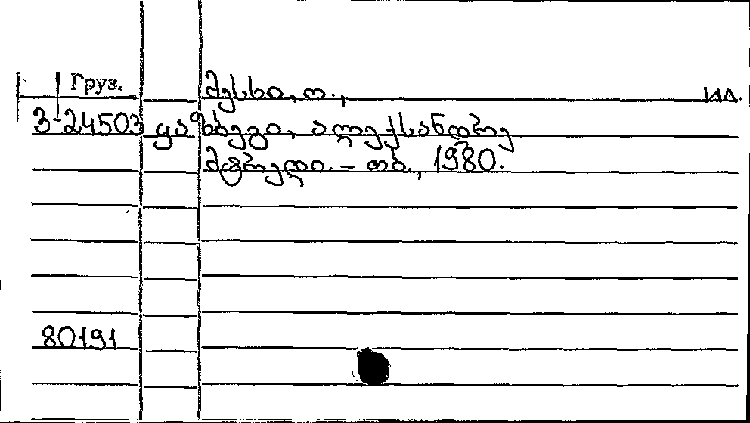 Груз.
მესხი, ო., ил.
3-24503 ყაზბეგი, ალექსანდრე
მტრედი. – თბ., 1980.
80191